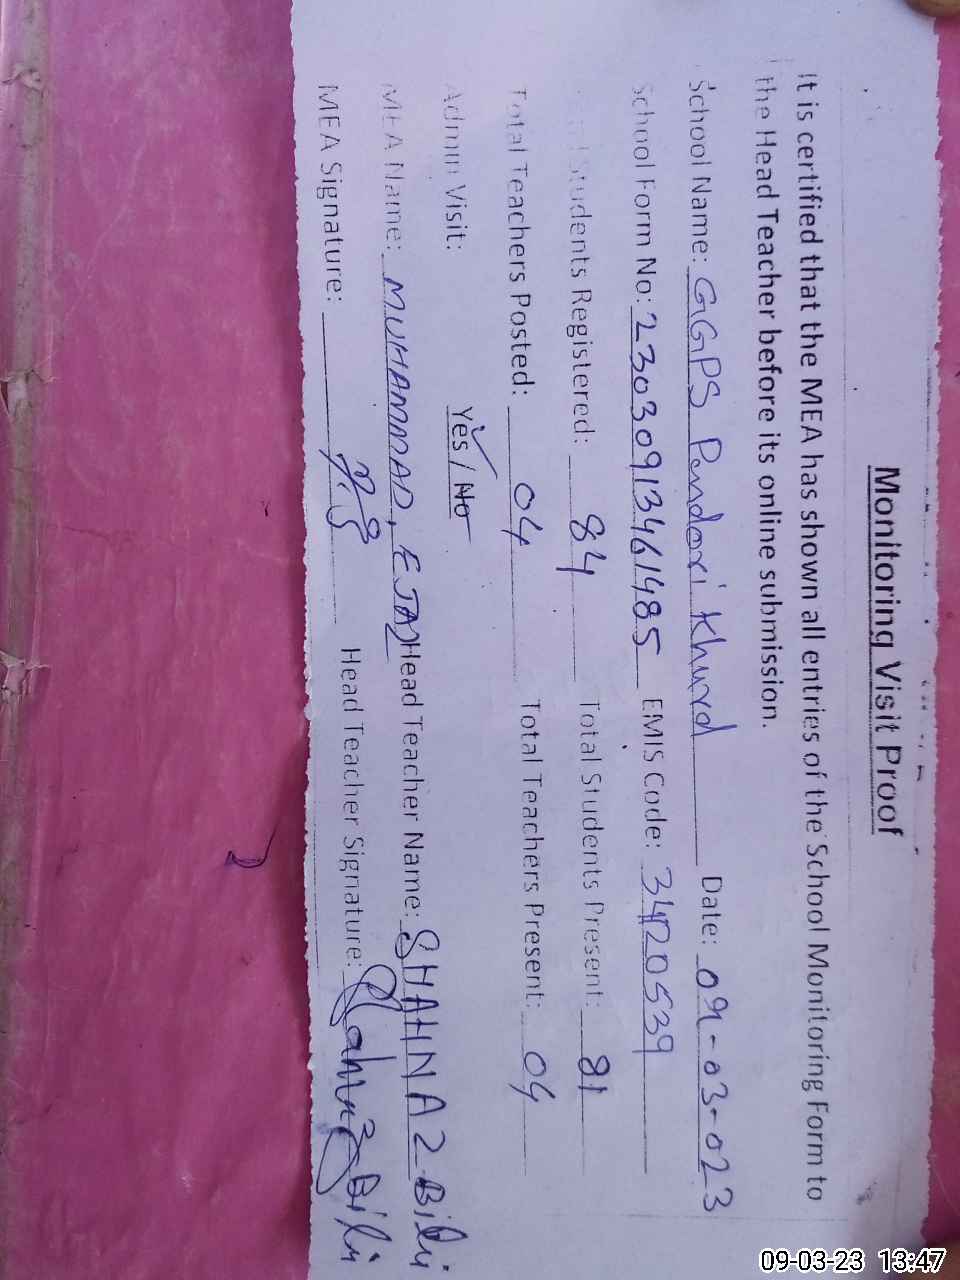 Monitoring Visit Proof
It is certified that the MEA has shown all entries of the School Monitoring Form to
the Head Teacher before its online submission.
School Name: GGPS Pandori Khurd Date: 09-03-023
School Form No: 23030913461485 EMIS Code: 34120539
Students Registered: 84 Total Students Present: 81
Total Teachers Posted: 04 Total Teachers Present: 04
Admin Visit: Yes / No
MEA Name: MUHAMMAD, EJAZ Head Teacher Name: SHAHNAZ Bibi
MEA Signature: Head Teacher Signature: Shahnaz Bibi
09-03-23 13:47